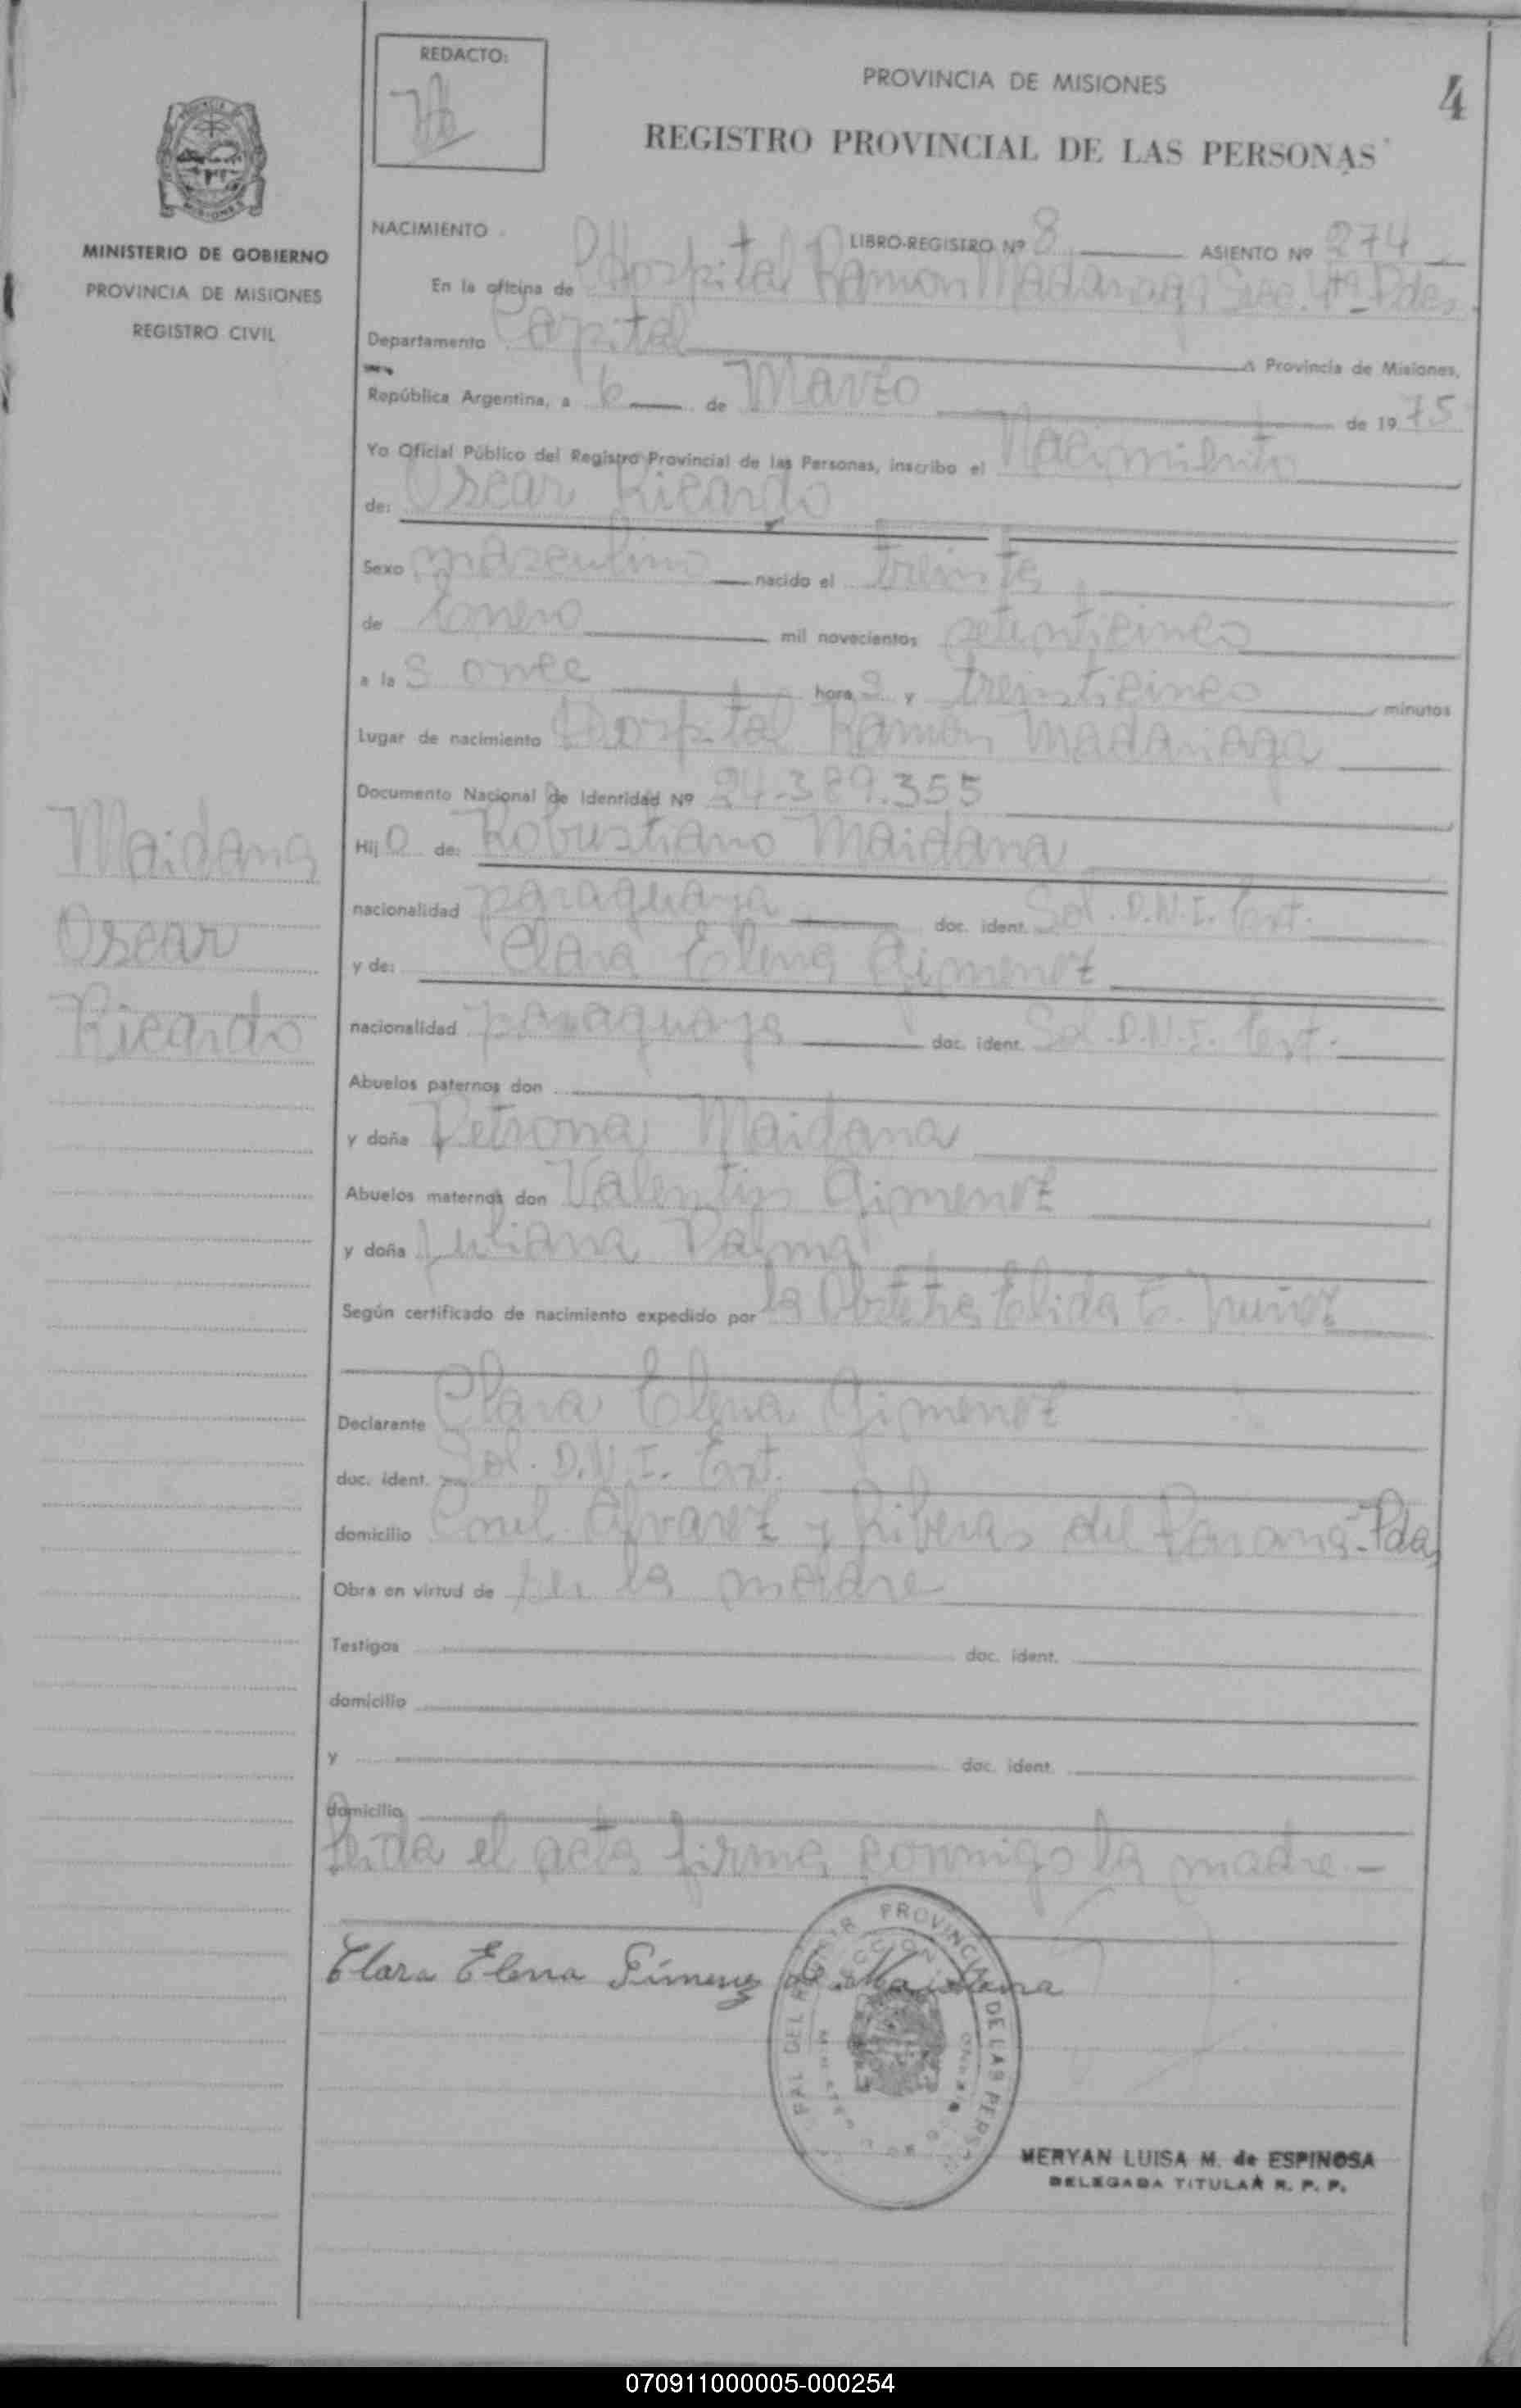 REDACTO:
PROVINCIA DE MISIONES
4
REGISTRO PROVINCIAL DE LAS PERSONAS
MINISTERIO DE GOBIERNO
PROVINCIA DE MISIONES
REGISTRO CIVIL
NACIMIENTO
LIBRO-REGISTRO Nº 8 ASIENTO Nº 274
En la oficina de Hospital Ramon Madariaga Secc. 4ta Pdas.
Departamento Capital Provincia de Misiones,
República Argentina, a 6 de Marzo de 1975
Yo Oficial Público del Registro Provincial de las Personas, inscribo el Nacimiento
de: Oscar Ricardo
Sexo masculino nacido el treinta
de Enero mil novecientos setenticinco
a las once horas y treinticinco minutos
Lugar de nacimiento Hospital Ramón Madariaga
Documento Nacional de Identidad Nº 24.389.355
Maidana
Oscar
Ricardo
Hijo de: Robustiano Maidana
nacionalidad paraguaya doc. ident. Sol. D.N.I. Ext.
y de: Clara Elena Gimenez
nacionalidad paraguaya doc. ident. Sol. D.N.I. Ext.
Abuelos paternos don
y doña Petrona Maidana
Abuelos maternos don Valentin Gimenez
y doña Juliana Palma
Según certificado de nacimiento expedido por la Obstetra Elida E. Nuñez
Declarante Clara Elena Gimenez
doc. ident. Sol. D.N.I. Ext.
domicilio Cnel. Alvarez y Riberas del Parana-Pdas
Obra en virtud de ser la madre
Testigos doc. ident.
domicilio
y doc. ident.
domicilio
Leida el acta firma conmigo la madre.-
Clara Elena Gimenez de Maidana
MERYAN LUISA M. de ESPINOSA
DELEGADA TITULAR R. P. P.
070911000005-000254